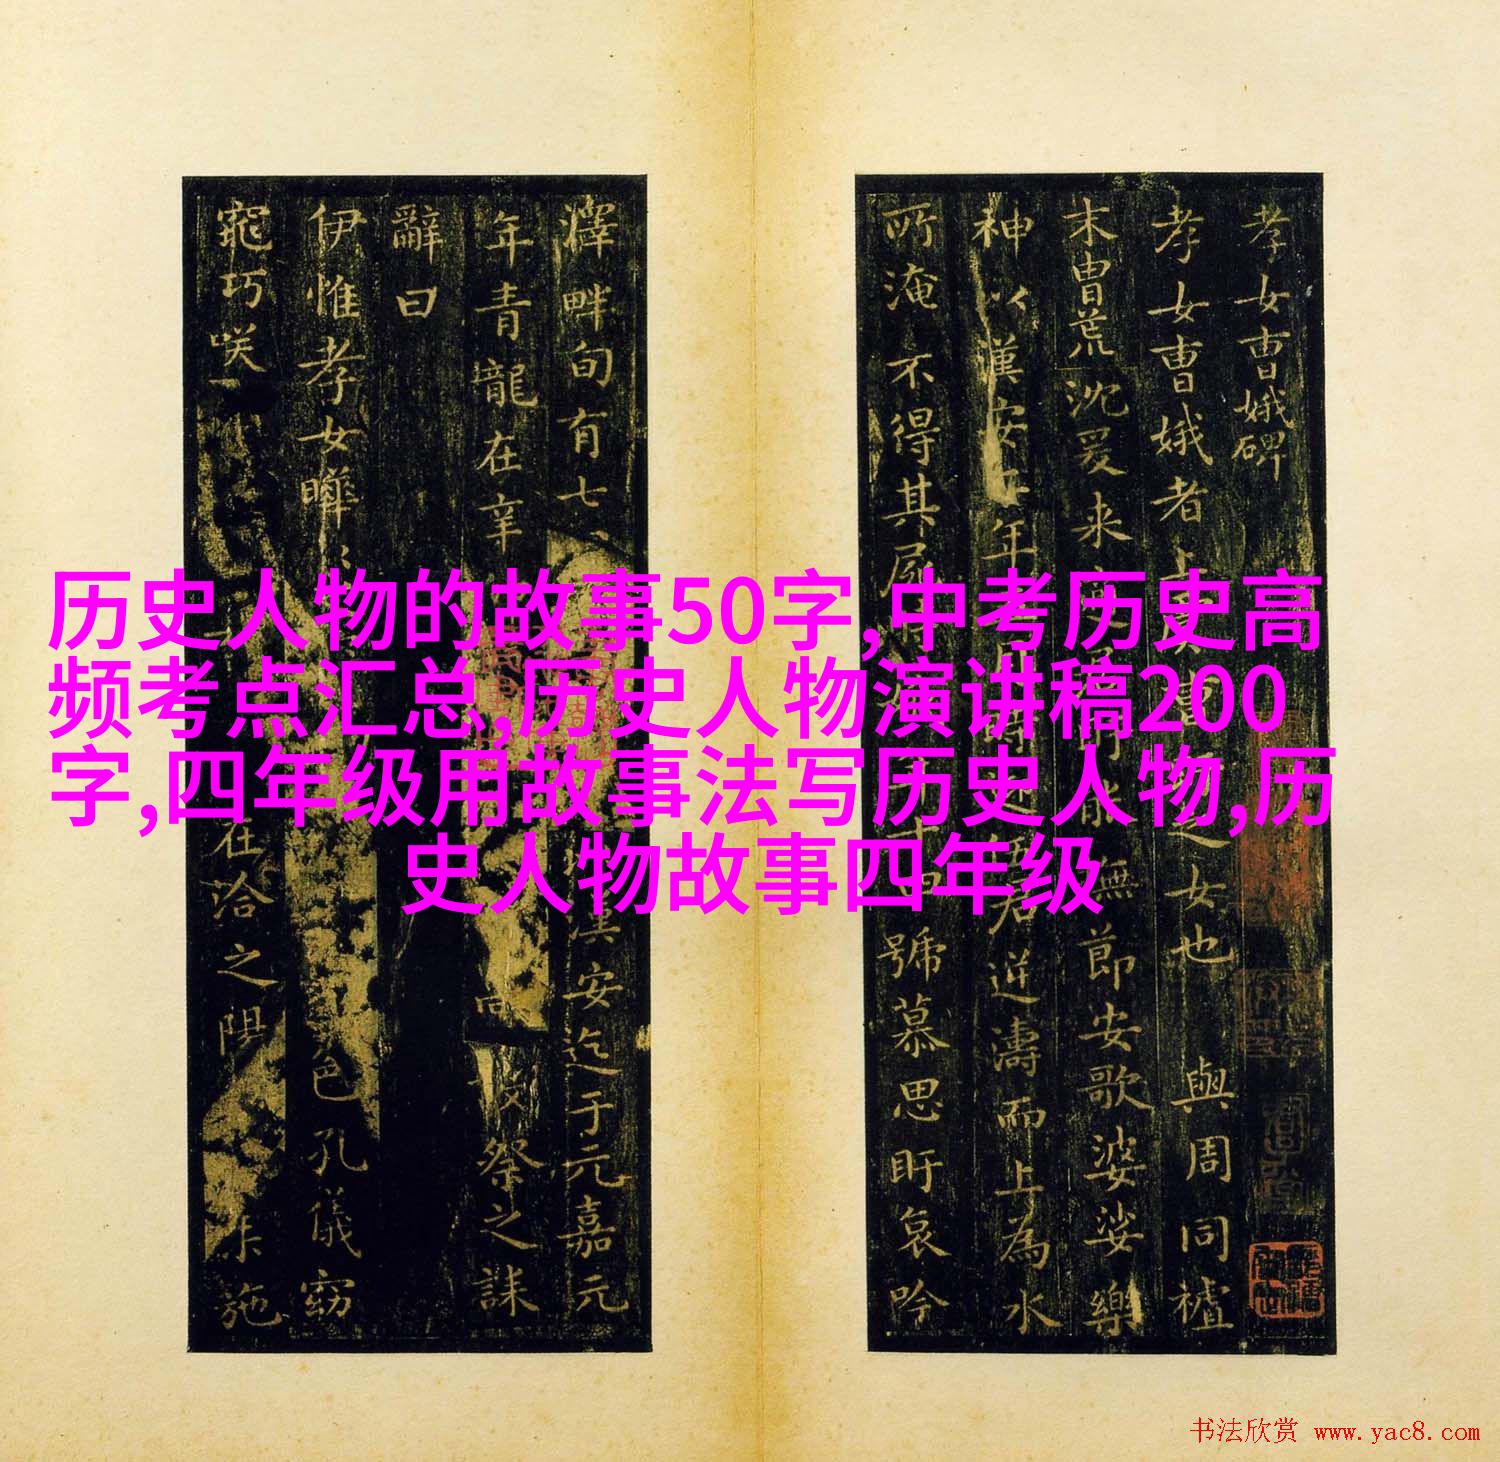 历史人物的故事50字,中考历史高
频考点汇总,历史人物演讲稿200
字,四年级用故事法写历史人物,历
史人物故事四年级
孝女曹娥碑
孝女曹娥者上虞之女也與周同
末冑荒沈爰来無節安歌婆娑樂
神以漢安年君逆濤而上為水
所淹不得其屍號慕思盱哀吟
澤畔旬有七漢安迄于元嘉元
年青龍在辛祭之誄
辭曰
伊惟孝女曄色孔儀窈
窕巧咲在洽之陽施
书法欣赏 www.yac8.com